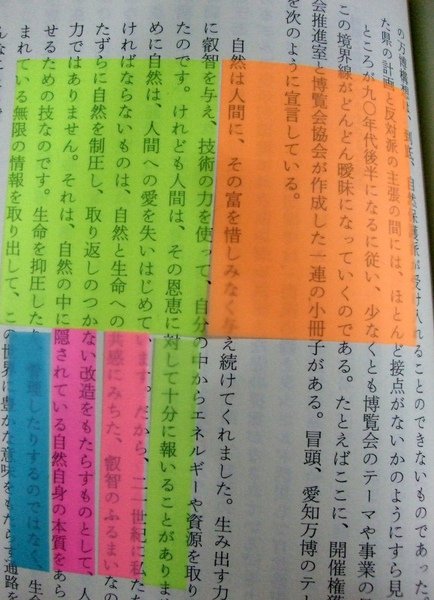 の万博構想は、到底、自然保護派が受け入れることのできないものであった。
た県の計画と反対派の主張の間には、ほとんど接点がないかのようにすら見
ところが九〇年代後半になるに従い、少なくとも博覧会のテーマや事業の
この境界線がどんどん曖昧になっていくのである。たとえばここに、開催権獲
会推進室と博覧会協会が作成した一連の小冊子がある。冒頭、愛知万博のテー
を次のように宣言している。
自然は人間に、その富を惜しみなく与え続けてくれました。生み出す力
に叡智を与え、技術の力を使って、自分の中からエネルギーや資源を取り
たのです。けれども人間は、その恩恵に対して十分に報いることがありま
めに自然は、人間への愛を失いはじめています。だから、二一世紀に私たち
ければならないものは、自然と生命への共感にみちた、叡智のふるまいなの
たずらに自然を制圧し、取り返しのつかない改造をもたらすものとして、人
力ではありません。それは、自然の中に隠されている自然自身の本質をあら
せるための技なのです。生命を抑圧したり管理したりするのではなく、生命
まれている無限の情報を取り出して、この世界に豊かな意味をもたらす通路を